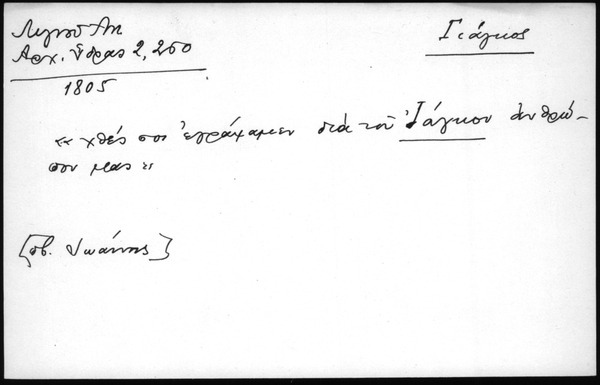 Λιγνού Αντ.
Αρχ. Ύδρας 2, 250
1805
Γιάγκος
«χθές σοι ἐγράψαμεν διά τοῦ Γιάγκου ἀνθρώ-
που μας»
[σβ. Ἰωάννης]